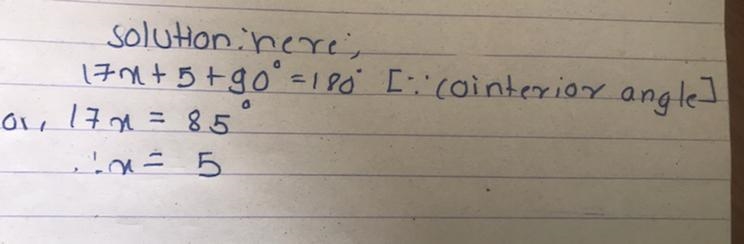 solution: here,
17x + 5 + 90° = 180° [∵ cointerior angle]
or, 17x = 85°
∴ x = 5